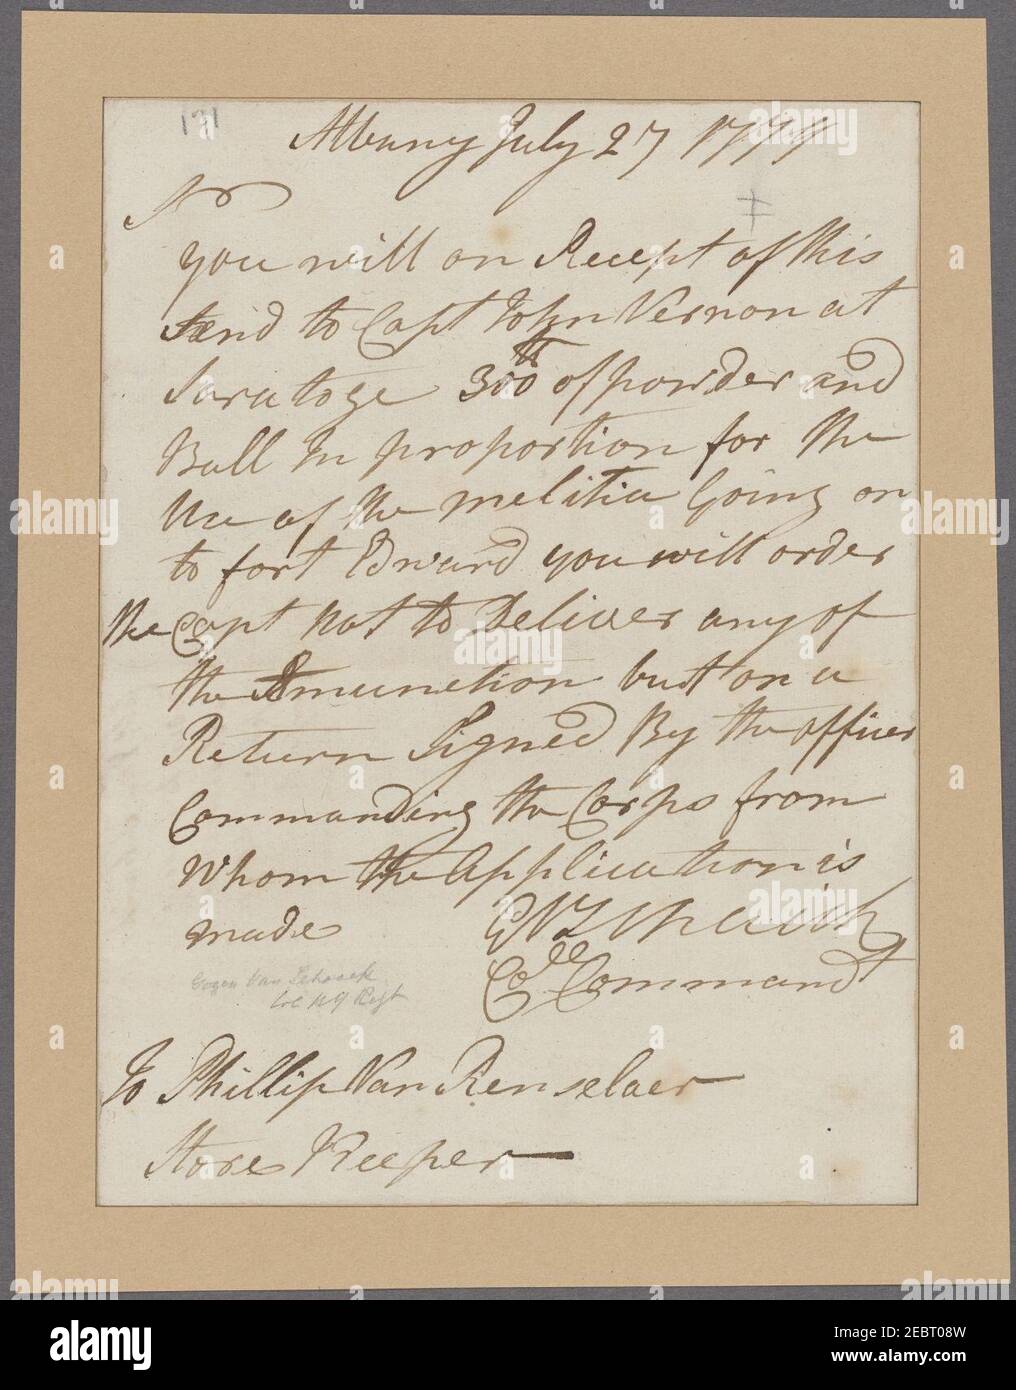 131
Albany July 27 1779
Sr
you will on Recept of this
Send to Capt John Vernon at
Saratoge 300 lb of powder and
Ball In proportion for the
Use of the melitia Going on
to fort Edward you will order
the Capt not to Deliver any of
the Amunetion but on a
Return Signed By the officer
Commanding the Corps from
Whom the Application is
made G V Schaick
Coll Command
Gozen Van Schaack
Col N Y Regt
To Phillip Van Renselaer
Store Keeper
alamy
Image ID: 2EBT08W
www.alamy.com